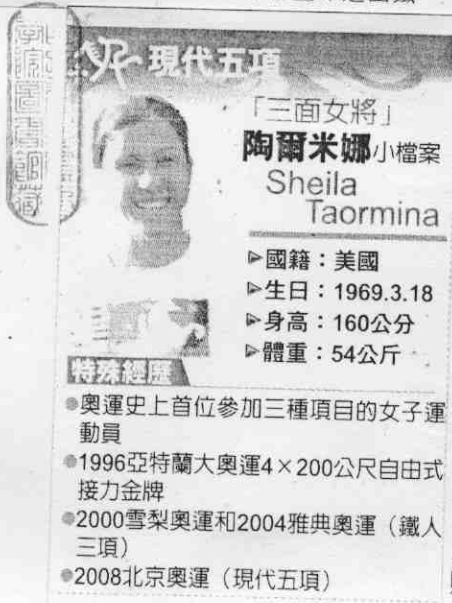 現代五項
「三面女將」
陶爾米娜小檔案
Sheila
Taormina
▶國籍：美國
▶生日：1969.3.18
▶身高：160公分
▶體重：54公斤
特殊經歷
●奧運史上首位參加三種項目的女子運
動員
●1996亞特蘭大奧運4×200公尺自由式
接力金牌
●2000雪梨奧運和2004雅典奧運（鐵人
三項）
●2008北京奧運（現代五項）